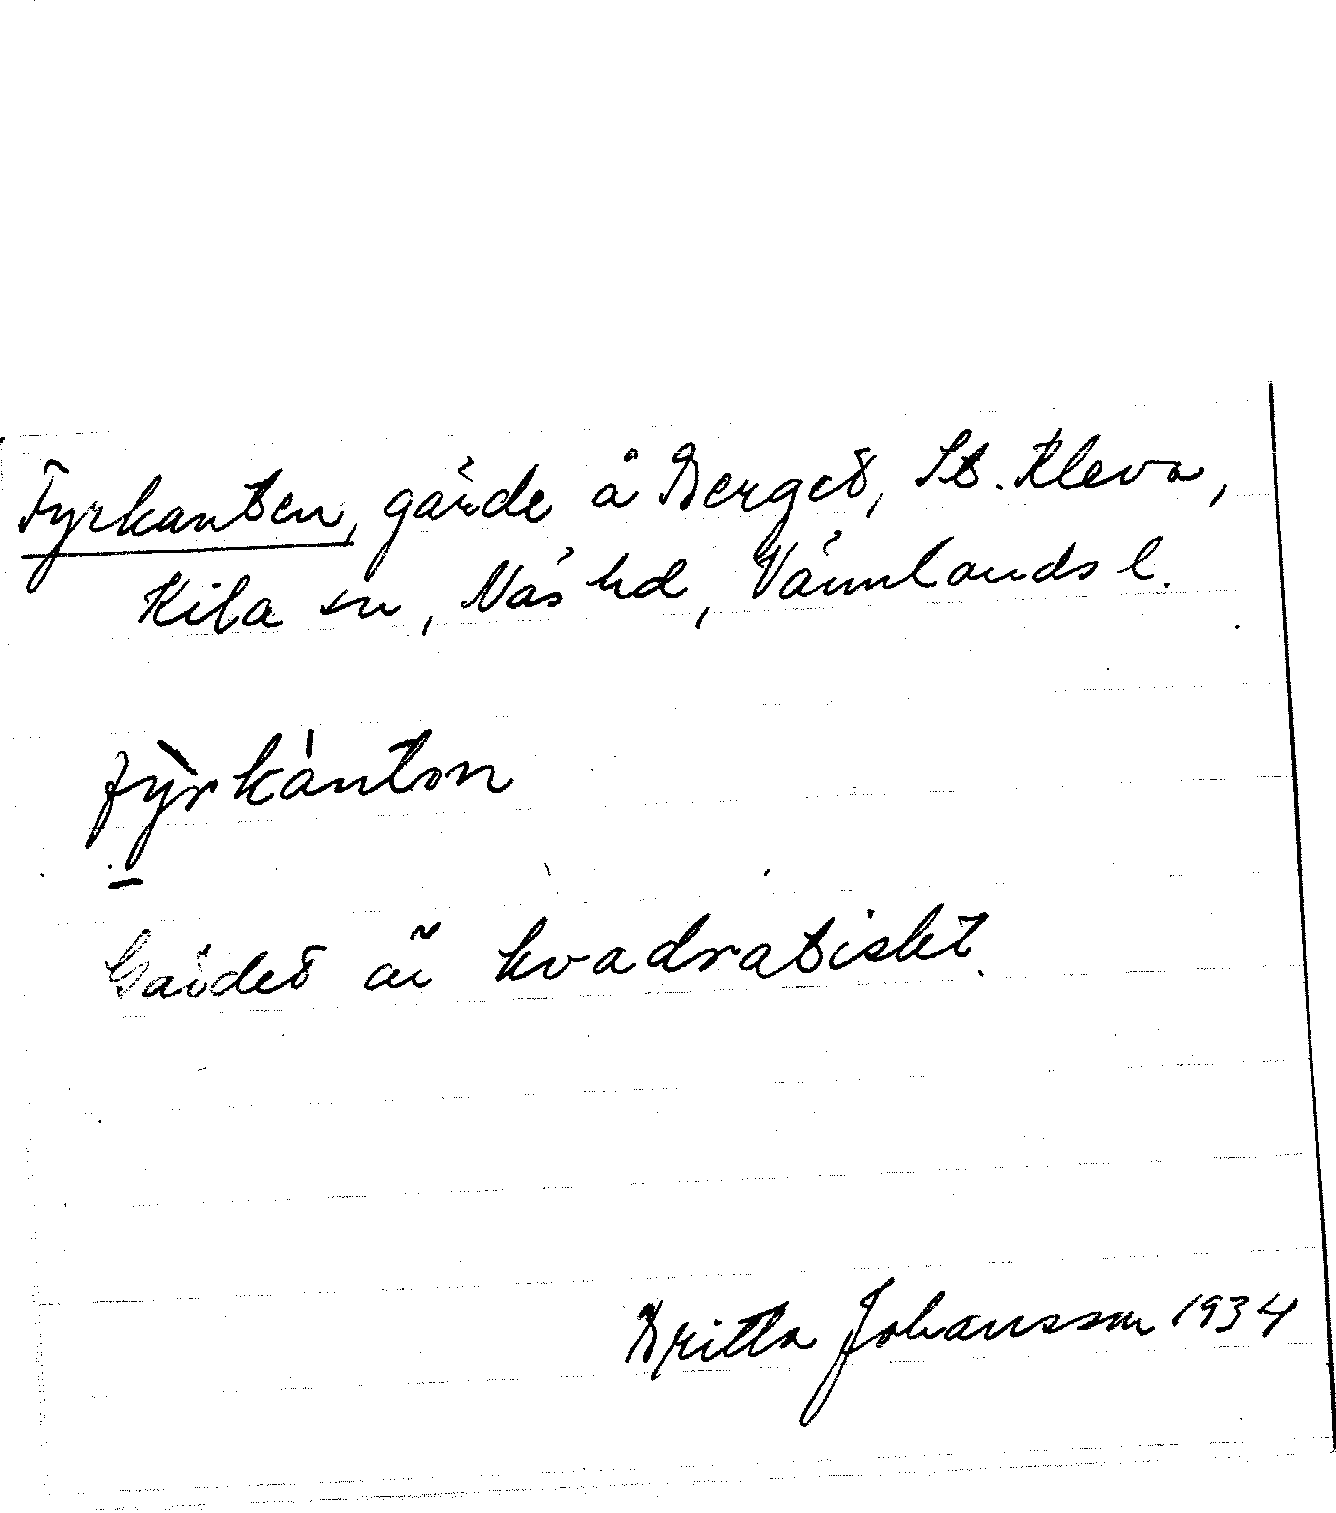 Fyrkanten, gärde å Berget, St. Kleva,
Kila sn, Näs hd, Värmlands l.
fỳrkánton
Gärdet är kvadratiskt.
Britta Johansson 1934